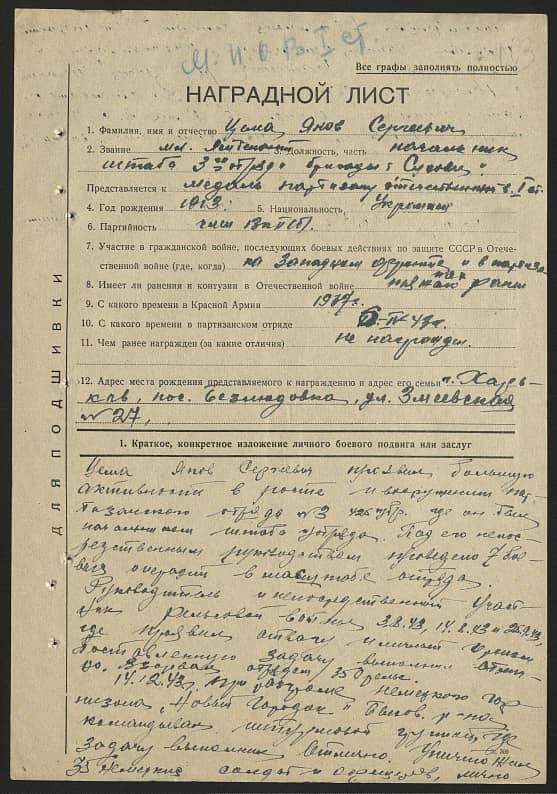 Все графы заполнять полностью
НАГРАДНОЙ ЛИСТ
1. Фамилия, имя и отчество Цема Яков Сергеевич
2. Звание мл. Лейтенант 3. Должность, часть начальник
штаба 3го отряда бригады
Представляется к медаль партизану отечественной в. I ст.
4. Год рождения 1913 5. Национальность Украинец
6. Партийность член ВКП(б)
7. Участие в гражданской войне, последующих боевых действиях по защите СССР в Отече-
ственной войне (где, когда) на Западном фронте и в партиза
8. Имеет ли ранения и контузии в Отечественной войне ранен
9. С какого времени в Красной Армии
10. С какого времени в партизанском отряде IV 43 г.
11. Чем ранее награжден (за какие отличия) не награжден.
12. Адрес места рождения представляемого к награждению и адрес его семьи г. Харь-
ков, пос. Безлюдовка, ул. Змиевская
№ 27,
ДЛЯ ПОДШИВКИ
1. Краткое, конкретное изложение личного боевого подвига или заслуг
Цема Яков Сергеевич проявил большую
активность в росте и вооружении пар-
тизанского отряда №3 где он был
начальником штаба отряда. Под его непос-
редственным руководством проведено 7 бое-
вых операций в масштабе отряда.
Руководитель и непосредственный участ-
ник Рельсовой войны 3.8.43, 14.8.43 и 25.9.43,
где проявил отвагу и
Поставленную задачу выполнил отлич-
но. Взорвал отрядом 350 рельс.
14.12.43, при разгроме немецкого гар-
низона „Новый Городок" Быхов. р-на
командовал штурмовой группой, где
задачу выполнил отлично. Уничтожил
35 немецких солдат и офицеров, лично